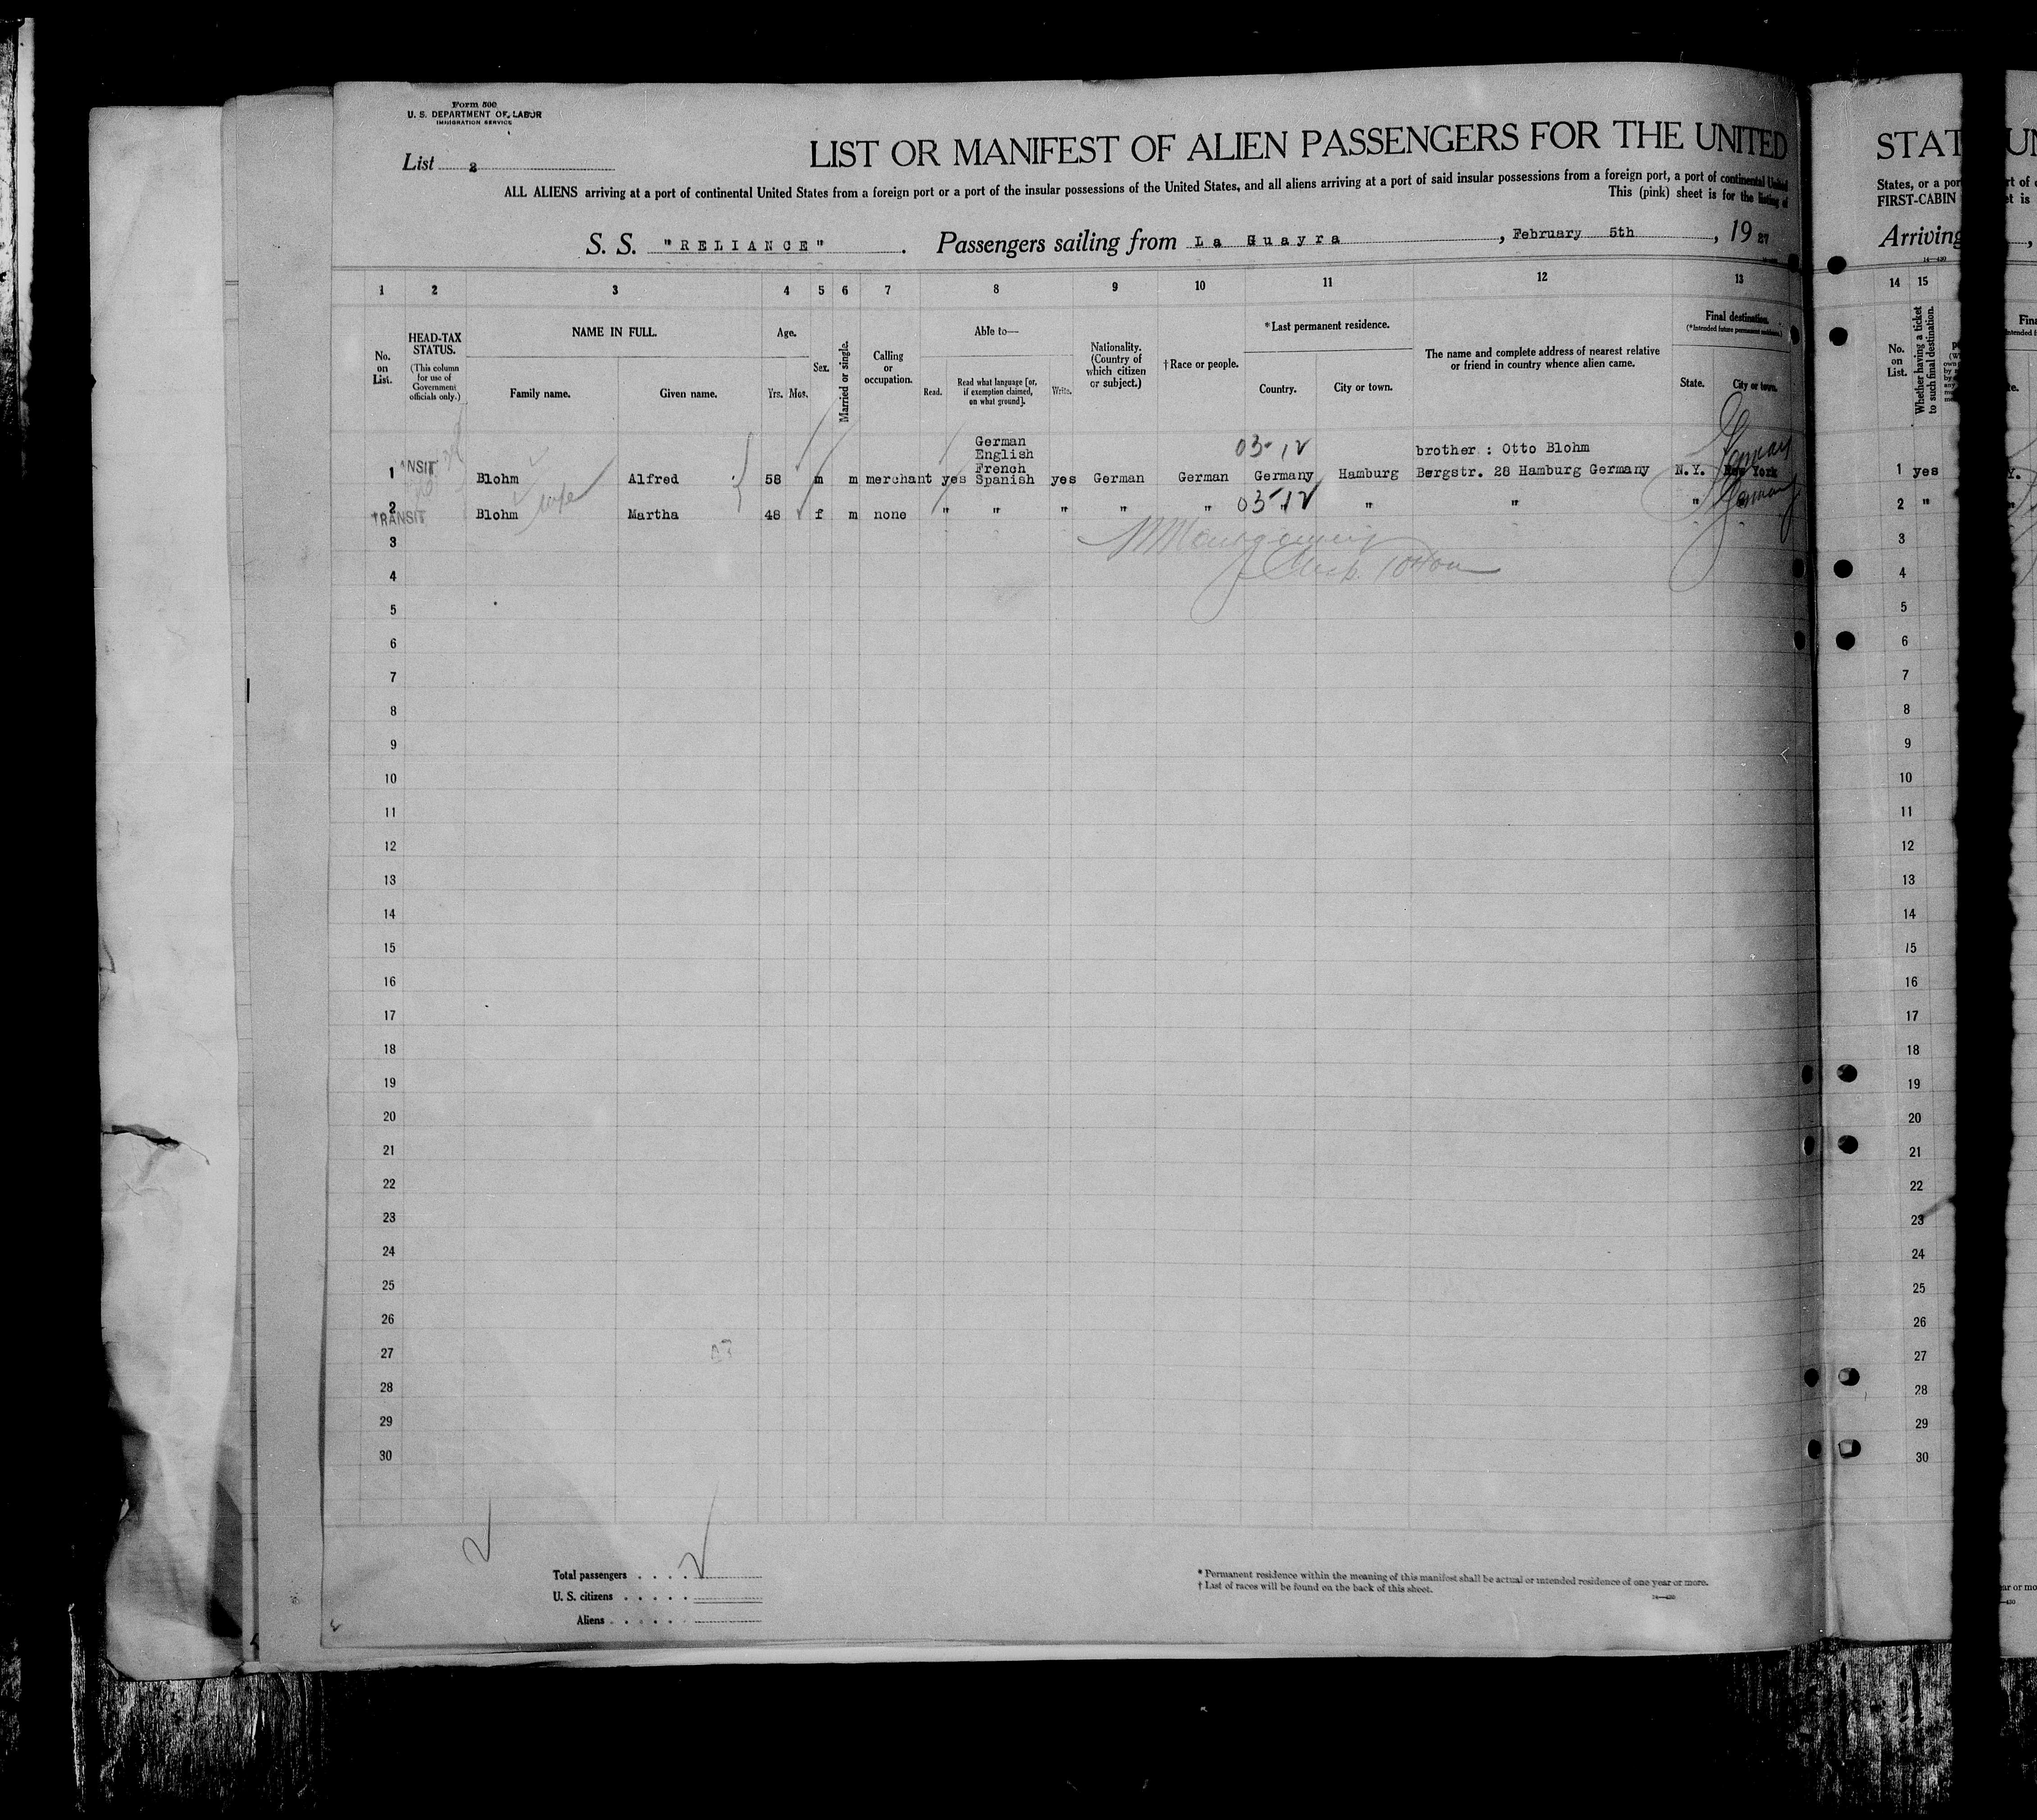 Form 500
U. S. DEPARTMENT OF LABOR
IMMIGRATION SERVICE
List 2
LIST OR MANIFEST OF ALIEN PASSENGERS FOR THE UNITED
ALL ALIENS arriving at a port of continental United States from a foreign port or a port of the insular possessions of the United States, and all aliens arriving at a port of said insular possessions from a foreign port, a port of continental United
This (pink) sheet is for the listing of
S. S. "RELIANCE". Passengers sailing from La Guayra, February 5th, 1927
1 2 3 4 5 6 7 8 9 10 11 12 13
No. on List.
HEAD-TAX STATUS.
(This column for use of Government officials only.)
NAME IN FULL.
Family name. Given name.
Age.
Yrs. Mos.
Sex.
Married or single.
Calling or occupation.
Able to—
Read. Read what language [or, if exemption claimed, on what ground]. Write.
Nationality. (Country of which citizen or subject.)
† Race or people.
* Last permanent residence.
Country. City or town.
The name and complete address of nearest relative or friend in country whence alien came.
Final destination.
(*Intended future permanent residence.)
State. City or town.
German
English 03-12 brother : Otto Blohm Germany
1 ANSIT Blohm Alfred 58 m m merchant yes French Spanish yes German German Germany Hamburg Bergstr. 28 Hamburg Germany N.Y. New York
2 TRANSIT Blohm wife Martha 48 f m none " " " " " 03-12 " " " Germany
3
4
5
6
7
8
9
10
11
12
13
14
15
16
17
18
19
20
21
22
23
24
25
26
27
28
29
30
Total passengers 2
U. S. citizens
Aliens
* Permanent residence within the meaning of this manifest shall be actual or intended residence of one year or more.
† List of races will be found on the back of this sheet.
14—430
STAT
States, or a por
FIRST-CABIN
Arriving
14—430
14 15
No. on List.
Whether having a ticket to such final destination.
1 yes
2 "
3
4
5
6
7
8
9
10
11
12
13
14
15
16
17
18
19
20
21
22
23
24
25
26
27
28
29
30